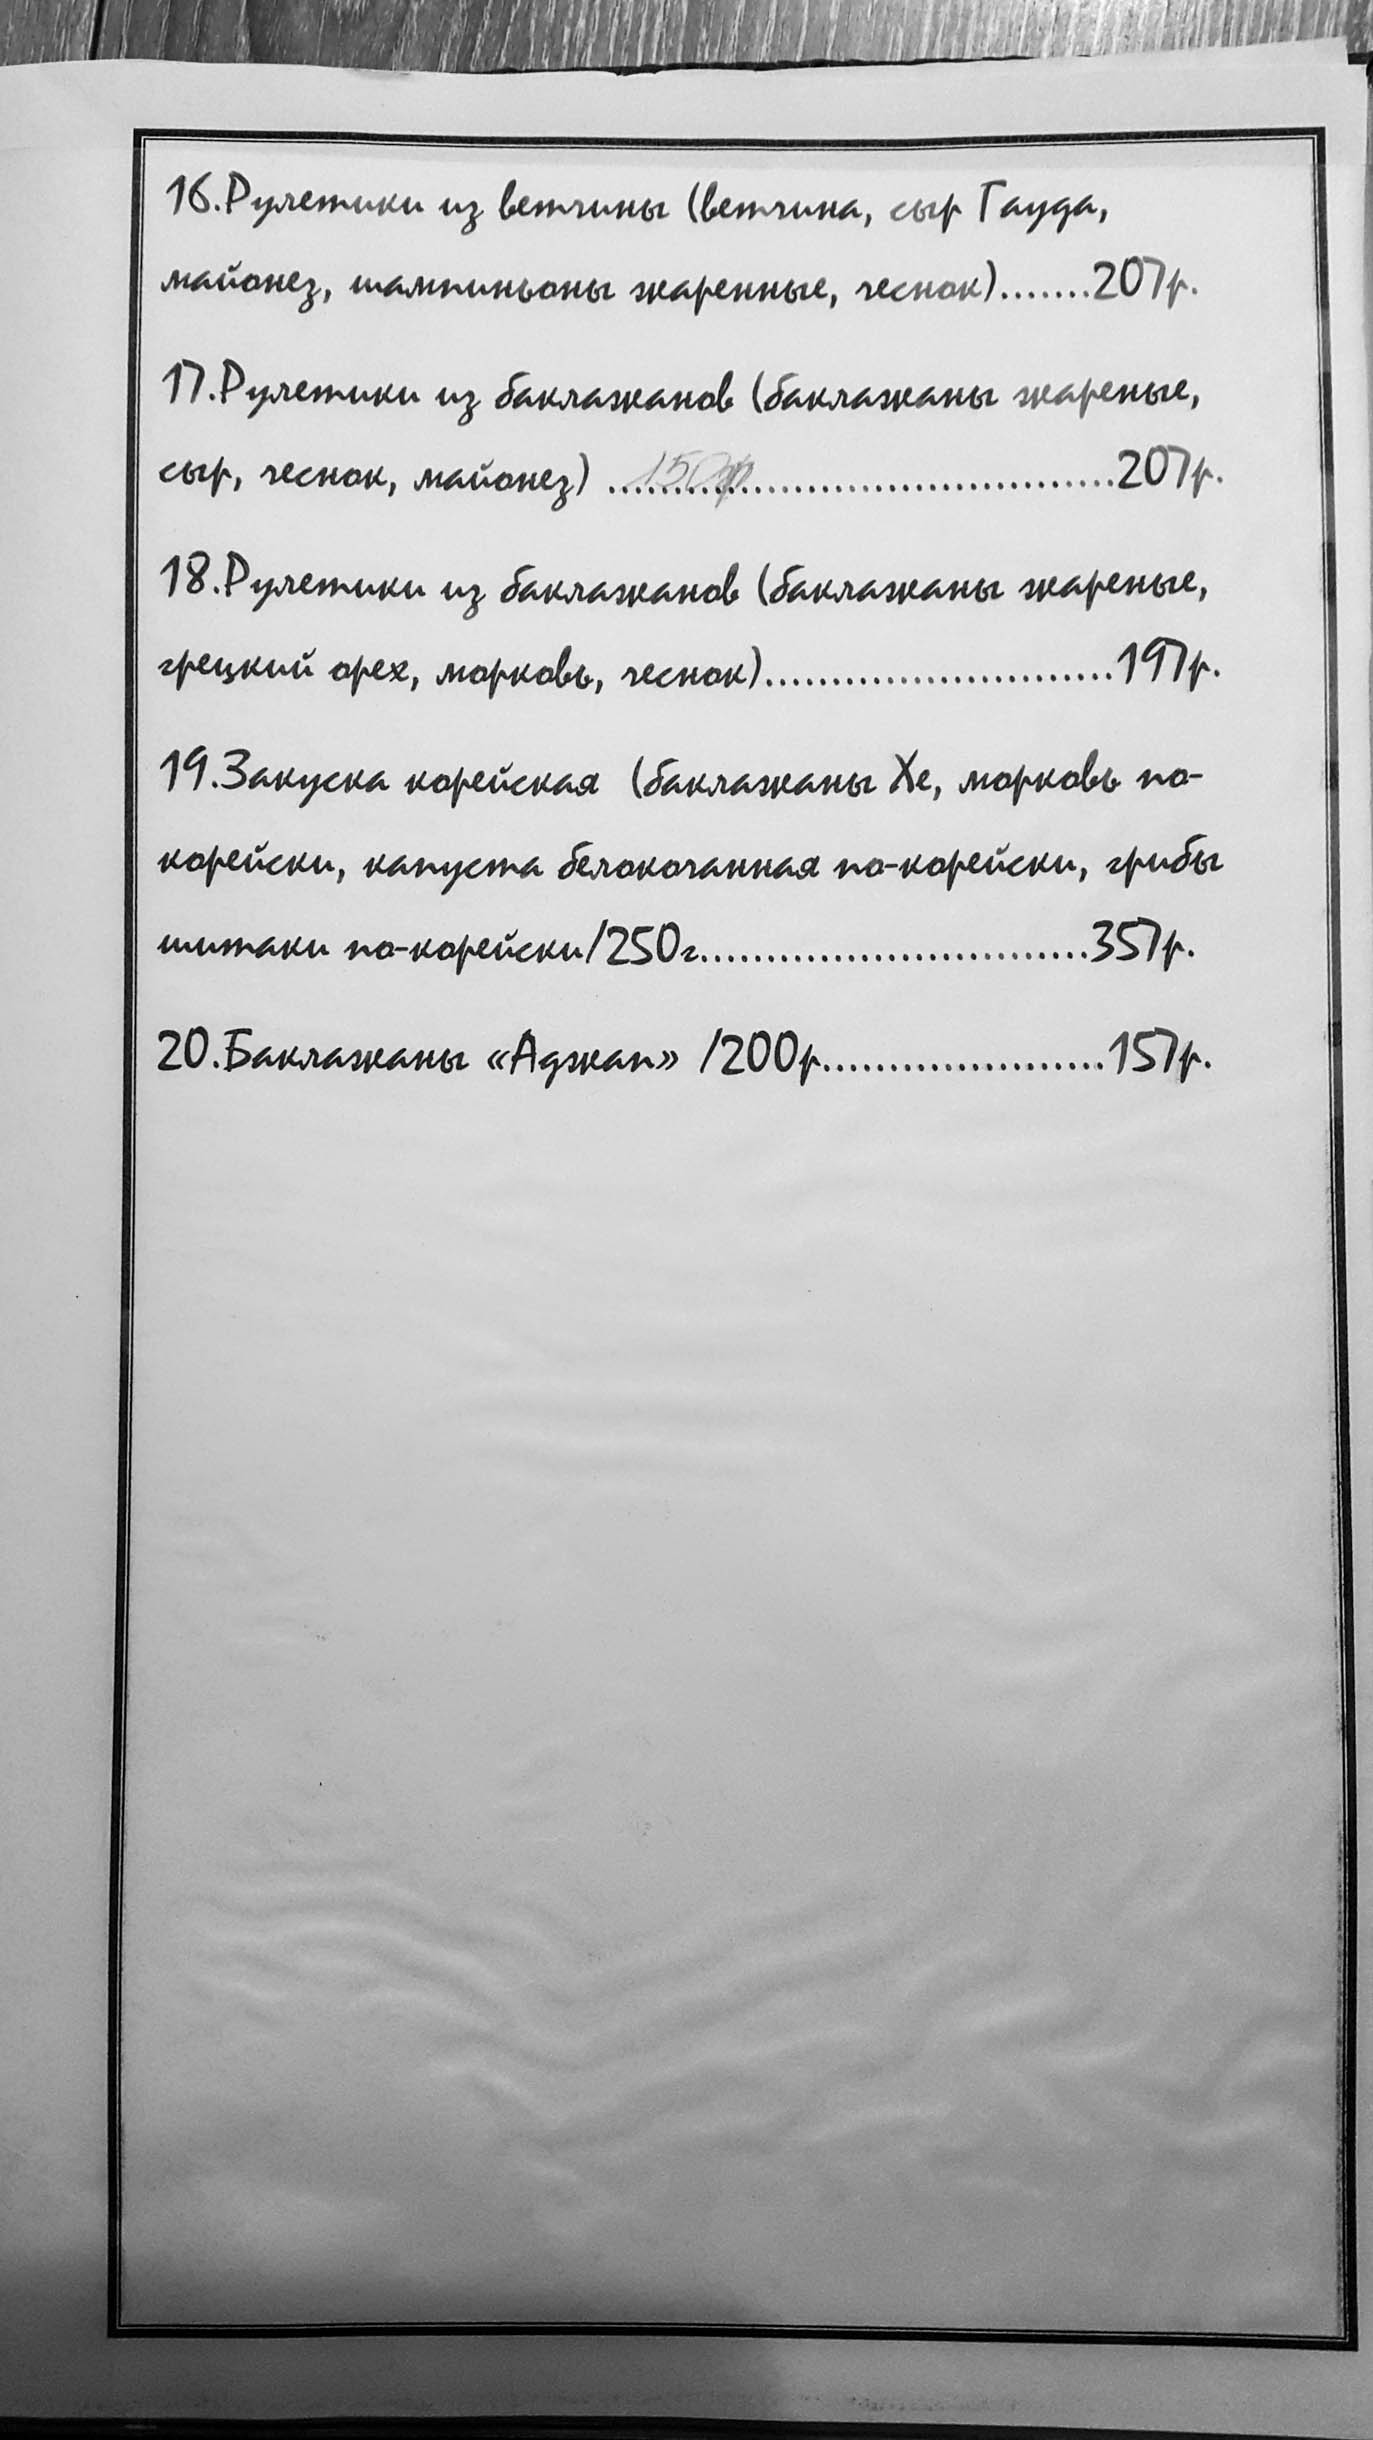 16.Рулетики из ветчины (ветчина, сыр Гауда,
майонез, шампиньоны жаренные, чеснок).......207р.
17.Рулетики из баклажанов (баклажаны жареные,
сыр, чеснок, майонез) ......................................207р.
18.Рулетики из баклажанов (баклажаны жареные,
грецкий орех, морковь, чеснок)..........................197р.
19.Закуска корейская (баклажаны Хе, морковь по-
корейски, капуста белокочанная по-корейски, грибы
шитаки по-корейски/250г.............................357р.
20.Баклажаны «Аджап» /200р.....................157р.